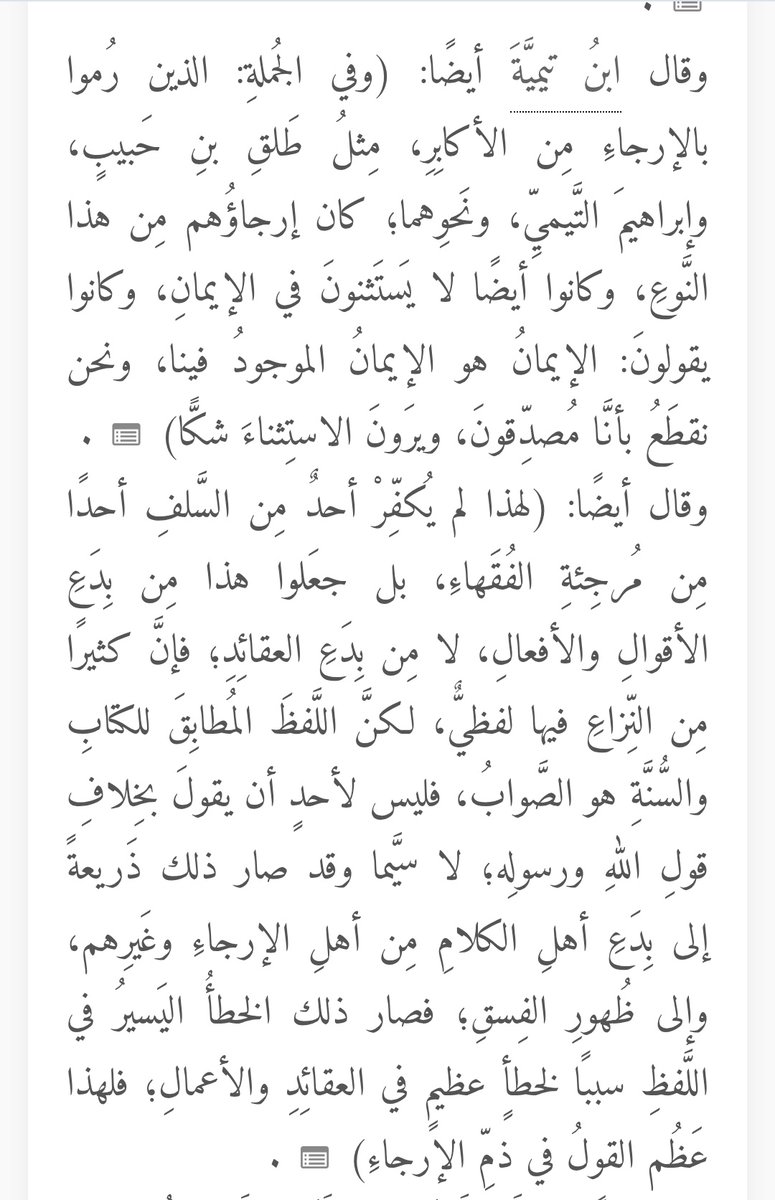 .
وقال ابنُ تيميَّةَ أيضًا: (وفي الجُملةِ: الذين رُموا
بالإرجاءِ مِن الأكابِرِ، مِثلُ طَلقِ بنِ حَبيبٍ،
وإبراهيمَ التَّيميِّ، ونَحوِهما؛ كان إرجاؤُهم مِن هذا
النَّوعِ، وكانوا أيضًا لا يَستَثنونَ في الإيمانِ، وكانوا
يقولونَ: الإيمانُ هو الإيمانُ الموجودُ فينا، ونحن
نقطَعُ بأنَّا مُصدِّقونَ، ويرَونَ الاستِثناءَ شكًّا) .
وقال أيضًا: (لهذا لم يُكفِّرْ أحدٌ مِن السَّلفِ أحدًا
مِن مُرجِئةِ الفُقَهاءِ، بل جعَلوا هذا مِن بِدَعِ
الأقوالِ والأفعالِ، لا مِن بِدَعِ العقائِدِ؛ فإنَّ كثيرًا
مِن النِّزاعِ فيها لفظيٌّ، لكنَّ اللَّفظَ المُطابِقَ للكتابِ
والسُّنَّةِ هو الصَّوابُ، فليس لأحدٍ أن يقولَ بخِلافِ
قولِ اللهِ ورسولِه؛ لا سيَّما وقد صار ذلك ذَريعةً
إلى بِدَعِ أهلِ الكلامِ مِن أهلِ الإرجاءِ وغَيرِهم،
وإلى ظُهورِ الفِسقِ؛ فصار ذلك الخطأُ اليَسيرُ في
اللَّفظِ سببًا لخطأٍ عظيمٍ في العقائِدِ والأعمالِ؛ فلهذا
عَظُم القولُ في ذمِّ الإرجاءِ) .